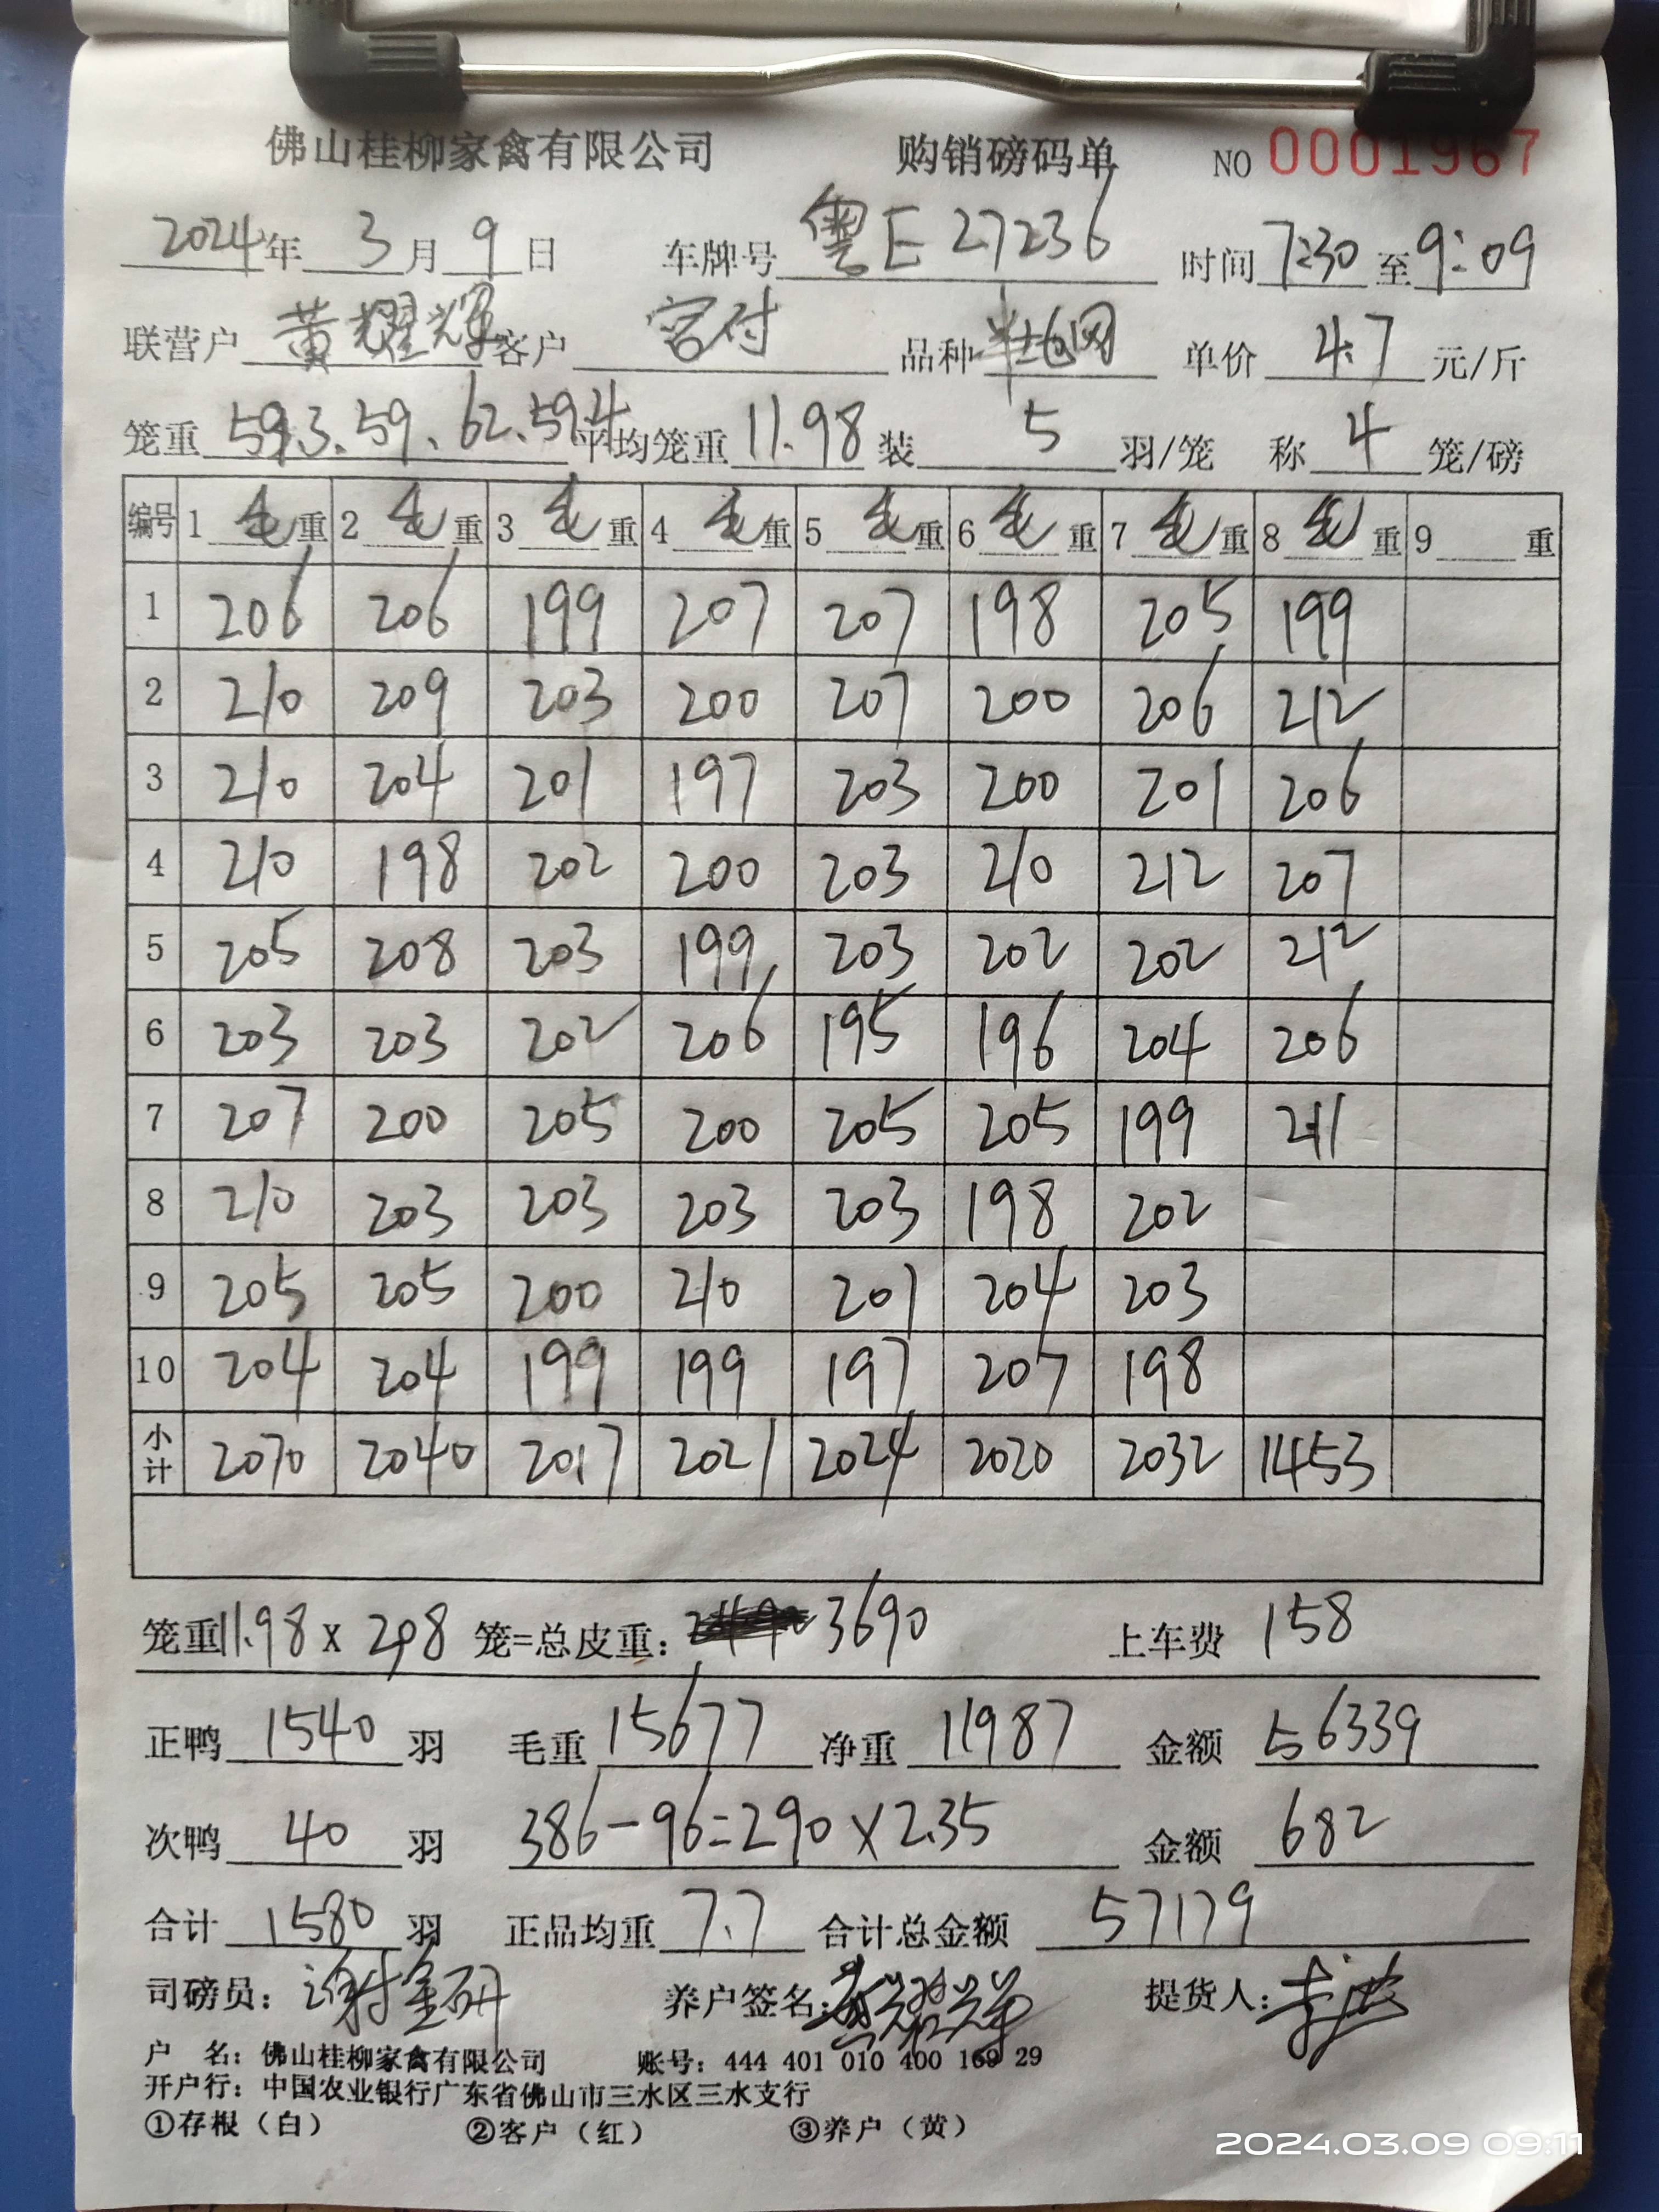 佛山桂柳家禽有限公司 购销磅码单 NO 0001967
2024年 3月 9日 车牌号 粤E 27236 时间 7:30 至 9:09
联营户 黄耀辉 客户 容付 品种 单价 4.7 元/斤
笼重 59.3.59.62.59.4 平均笼重 11.98 装 5 羽/笼 称 4 笼/磅
编号 1 毛重 2 毛重 3 毛重 4 毛重 5 毛重 6 毛重 7 毛重 8 毛重 9 重
1 206 206 199 207 207 198 205 199
2 210 209 203 200 207 200 206 212
3 210 204 201 197 203 200 201 206
4 210 198 202 200 203 210 212 207
5 205 208 203 199 203 202 202 212
6 203 203 202 206 195 196 204 206
7 207 200 205 200 205 205 199 211
8 210 203 203 203 203 198 202
9 205 205 200 210 201 204 203
10 204 204 199 199 197 207 198
小计 2070 2040 2017 2021 2024 2020 2032 1453
笼重 11.98 x 308 笼=总皮重: 3690 上车费 158
正鸭 1540 羽 毛重 15677 净重 11987 金额 56339
次鸭 40 羽 386-96=290×2.35 金额 682
合计 1580 羽 正品均重 7.7 合计总金额 57179
司磅员: 谢金研 养户签名: 黄耀辉 提货人:
户 名: 佛山桂柳家禽有限公司 账号: 444 401 010 400 169 29
开户行: 中国农业银行广东省佛山市三水区三水支行
①存根（白） ②客户（红） ③养户（黄）
2024.03.09 09:11